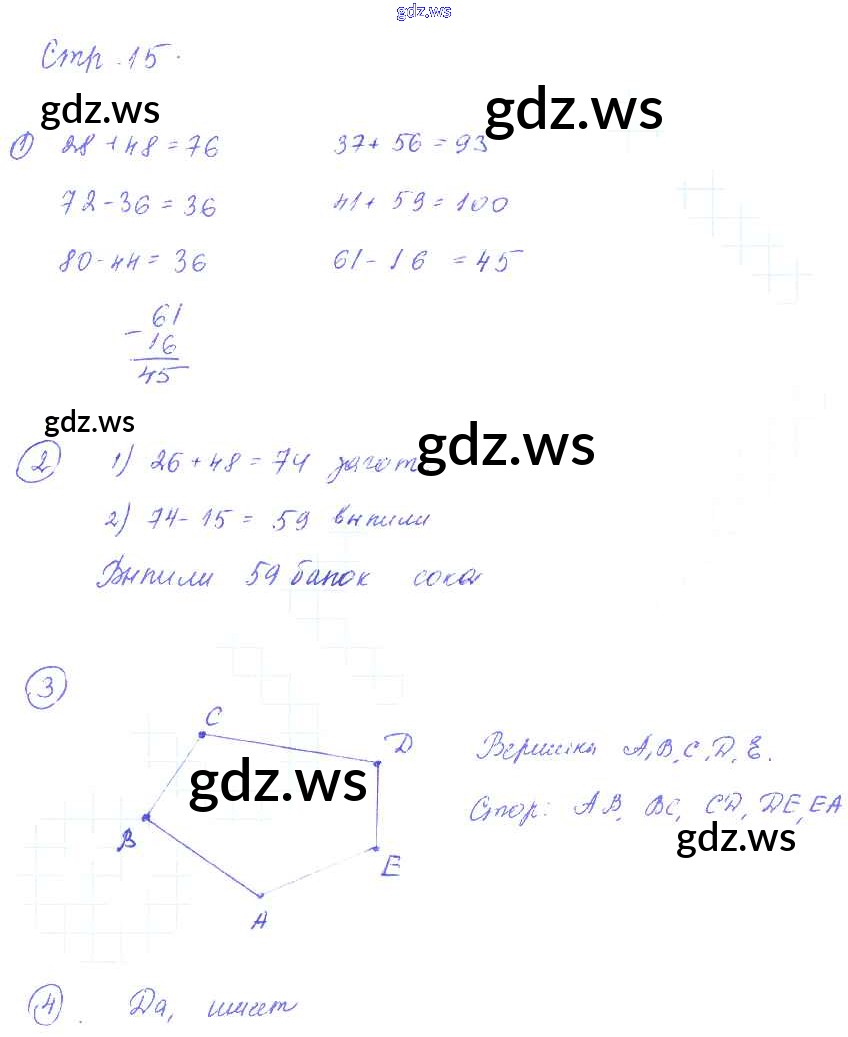 gdz.ws
Стр. 15.
gdz.ws gdz.ws
1) 28 + 48 = 76 37 + 56 = 93
72 - 36 = 36 41 + 59 = 100
80 - 44 = 36 61 - 16 = 45
61
- 16
45
gdz.ws
2 1) 26 + 48 = 74 загот gdz.ws
2) 74 - 15 = 59 выпили
Выпили 59 банок сока
3
C
D
gdz.ws
B
E
A
Вершина A, B, C, D, E.
Стор: AB, BC, CD, DE, EA
gdz.ws
4. Да, имеет